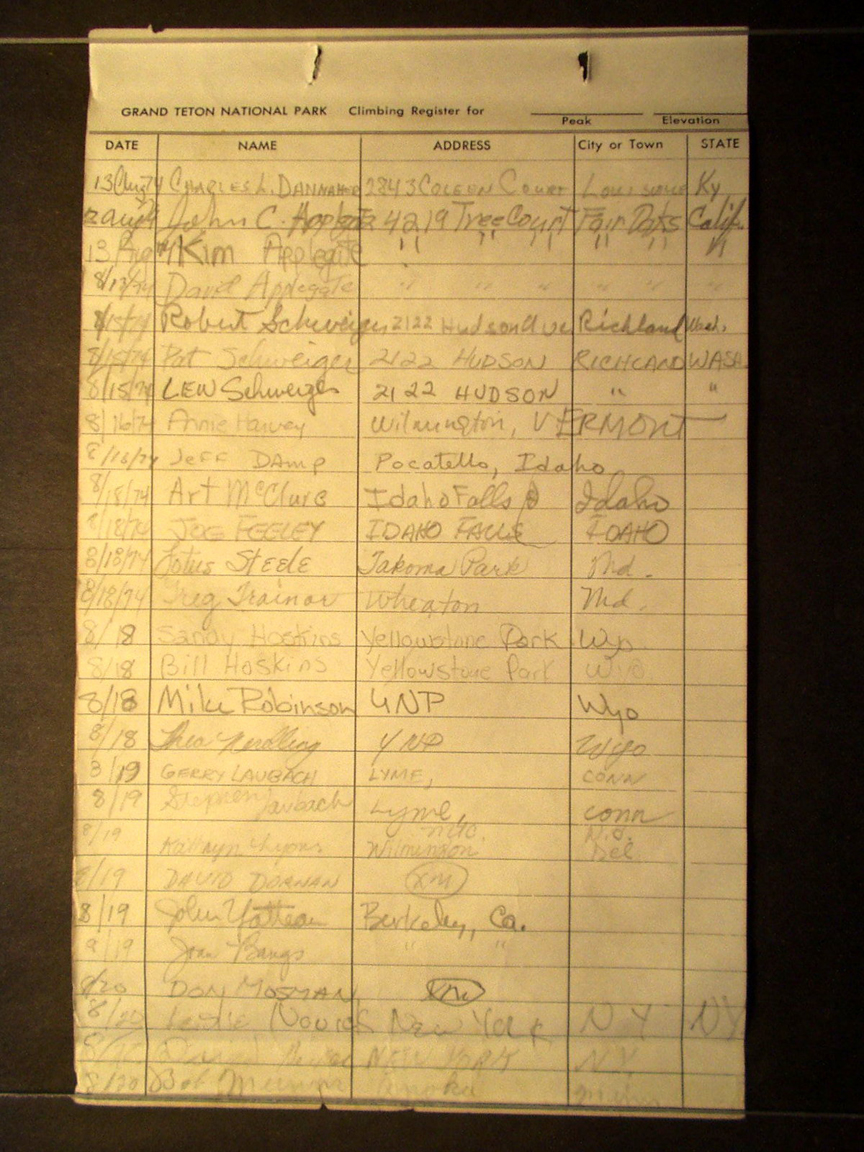 GRAND TETON NATIONAL PARK Climbing Register for
Peak Elevation
DATE NAME ADDRESS City or Town STATE
13 Aug 74 CHARLES L. DANNAHER 2843 COLEEN COURT Louisville Ky
Aug John C. Applegate 4219 Tree Court Fair Oaks Calif.
13 Aug Kim Applegate " " " " " "
8/13/74 David Applegate " " " " " "
8/15/74 Robert Schweiger 2122 Hudson Ave Richland Wash.
8/15/74 Pat Schweiger 2122 HUDSON RICHLAND WASH.
8/15/74 LEW Schweiger 2122 HUDSON " "
8/16/74 Annie Harvey Wilmington, VERMONT
8/18/74 JEFF DAMP Pocatello, Idaho
8/18/74 Art McClure Idaho Falls Idaho
8/18/74 JOE FEELEY IDAHO FALLS IDAHO
8/18/74 Lotus Steele Takoma Park Md.
8/18/74 Greg Trainor Wheaton Md.
8/18 Sandy Hoskins Yellowstone Park Wyo.
8/18 Bill Hoskins Yellowstone Park Wyo
8/18 Mike Robinson YNP Wyo
8/18 YNP Wyo
8/19 GERRY LAUBACH LYME, CONN
8/19 Stephen Laubach Lyme, conn
8/19 Kathryn Lyons Wilmington Del
8/19 DAVID DORNAN
8/19 John Yatteau Berkeley, Ca.
8/19 Joan Bangs " "
8/20 DON MOSMAN
8/20 Leslie Novick New York N Y NY
David NEW YORK NY
8/20 Bob Anoka Minn